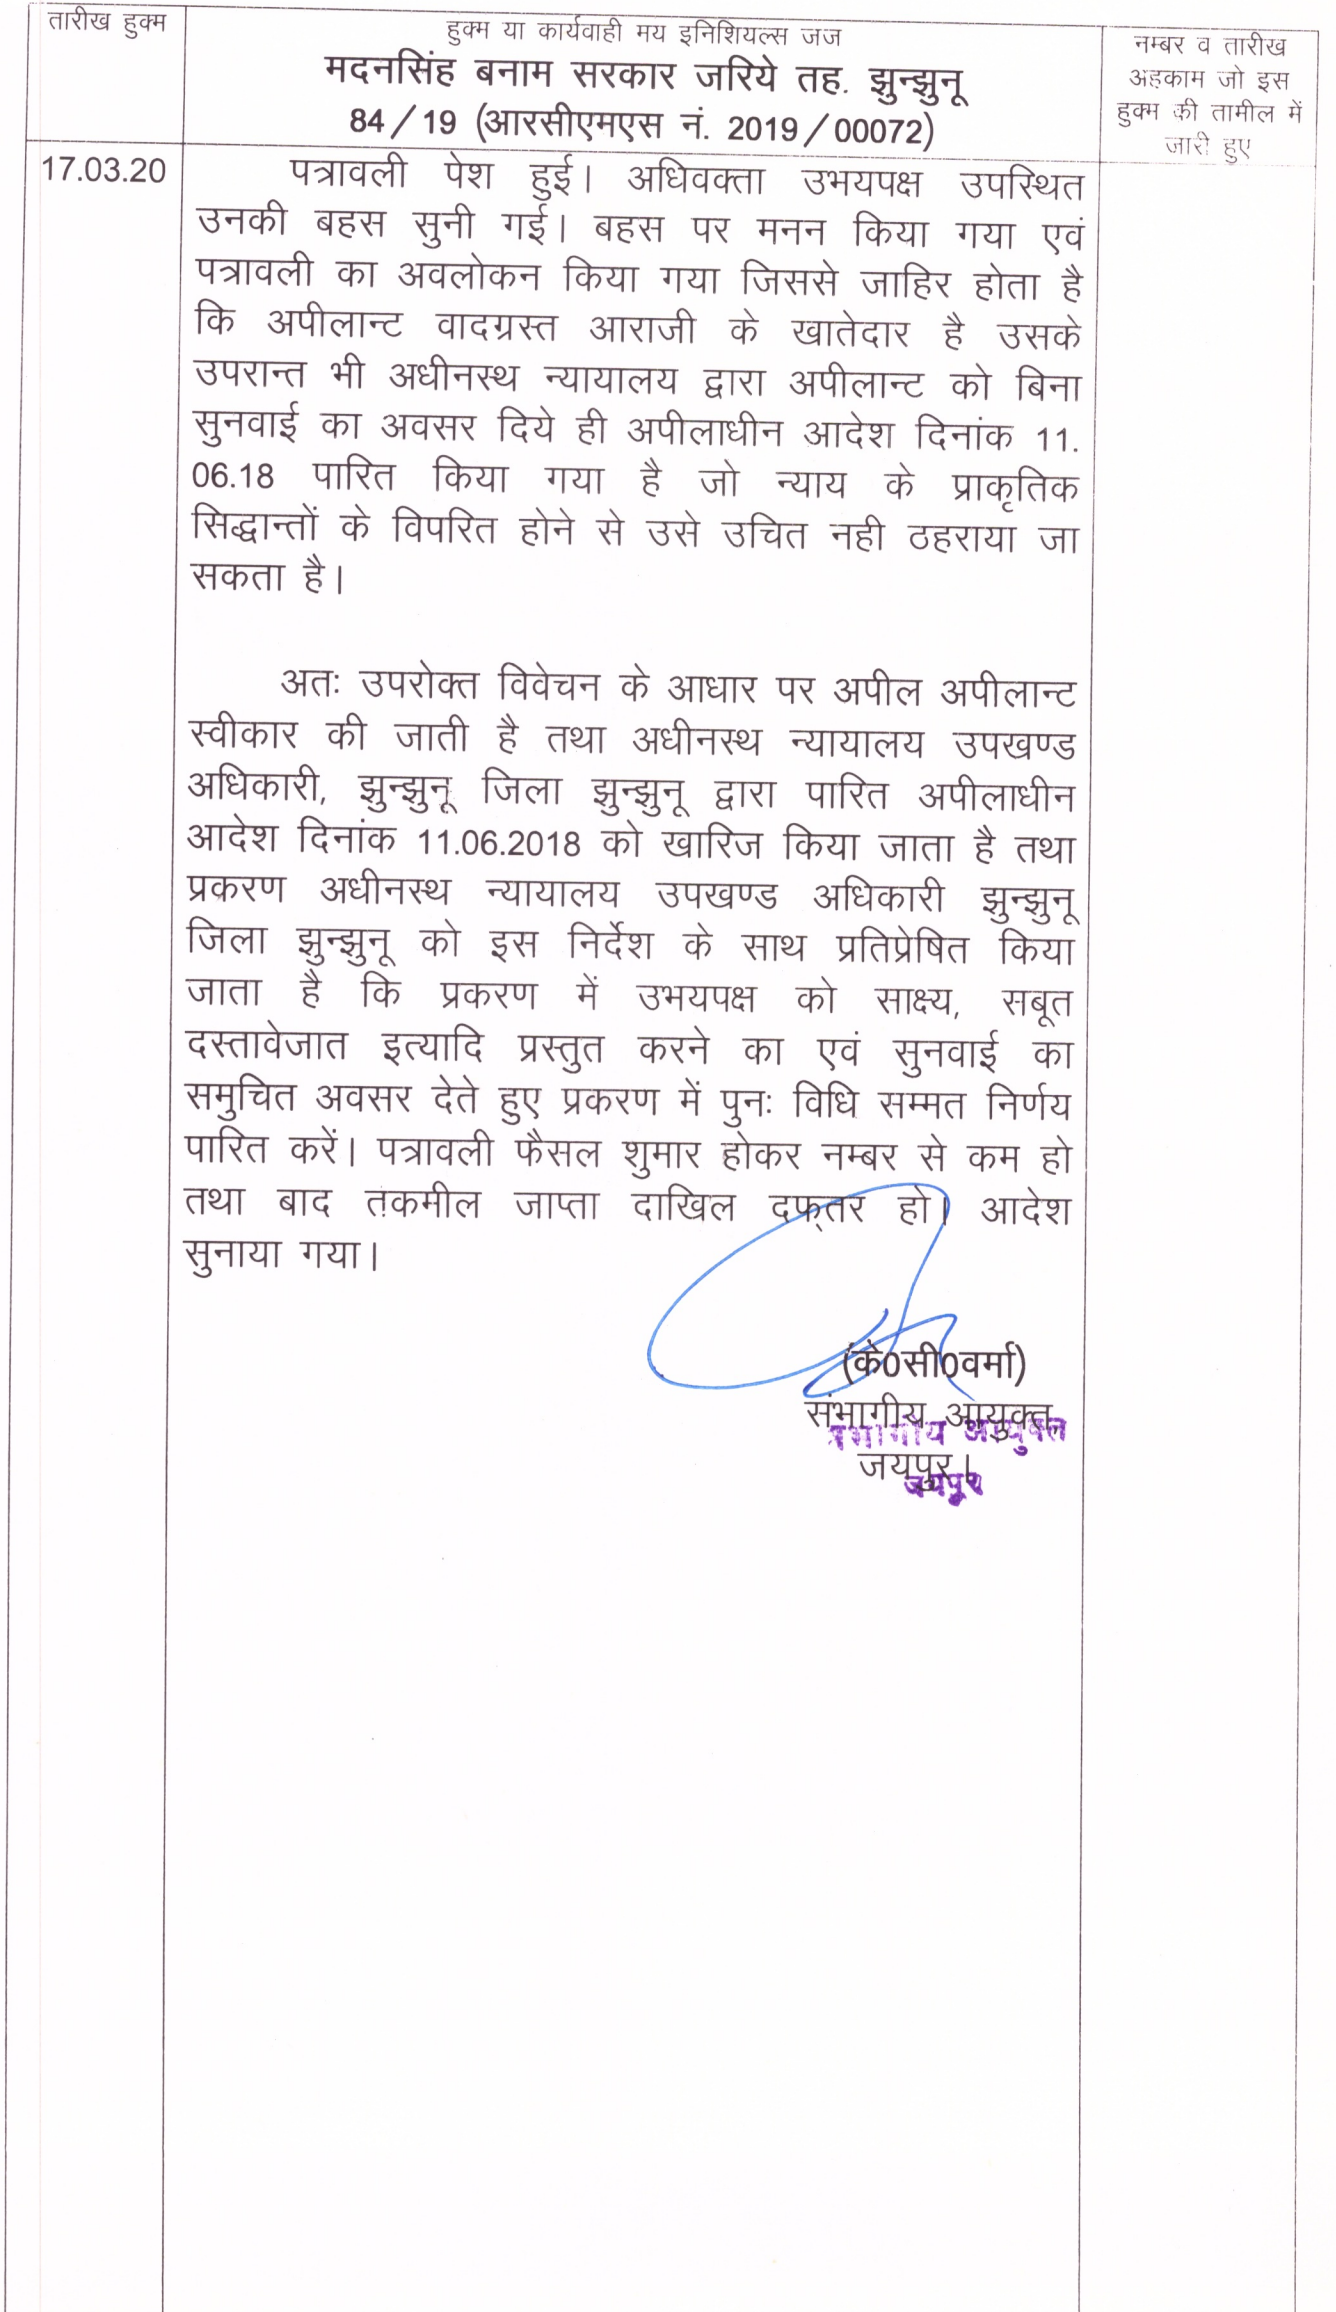 तारीख हुक्म
हुक्म या कार्यवाही मय इनिशियल्स जज
मदनसिंह बनाम सरकार जरिये तह. झुन्झुनू
84/19 (आरसीएमएस नं. 2019/00072)
नम्बर व तारीख
अहकाम जो इस
हुक्म की तामील में
जारी हुए
17.03.20
पत्रावली पेश हुई। अधिवक्ता उभयपक्ष उपस्थित
उनकी बहस सुनी गई। बहस पर मनन किया गया एवं
पत्रावली का अवलोकन किया गया जिससे जाहिर होता है
कि अपीलान्ट वादग्रस्त आराजी के खातेदार है उसके
उपरान्त भी अधीनस्थ न्यायालय द्वारा अपीलान्ट को बिना
सुनवाई का अवसर दिये ही अपीलाधीन आदेश दिनांक 11.
06.18 पारित किया गया है जो न्याय के प्राकृतिक
सिद्धान्तों के विपरित होने से उसे उचित नही ठहराया जा
सकता है।
अतः उपरोक्त विवेचन के आधार पर अपील अपीलान्ट
स्वीकार की जाती है तथा अधीनस्थ न्यायालय उपखण्ड
अधिकारी, झुन्झुनू जिला झुन्झुनू द्वारा पारित अपीलाधीन
आदेश दिनांक 11.06.2018 को खारिज किया जाता है तथा
प्रकरण अधीनस्थ न्यायालय उपखण्ड अधिकारी झुन्झुनू
जिला झुन्झुनू को इस निर्देश के साथ प्रतिप्रेषित किया
जाता है कि प्रकरण में उभयपक्ष को साक्ष्य, सबूत
दस्तावेजात इत्यादि प्रस्तुत करने का एवं सुनवाई का
समुचित अवसर देते हुए प्रकरण में पुनः विधि सम्मत निर्णय
पारित करें। पत्रावली फैसल शुमार होकर नम्बर से कम हो
तथा बाद तकमील जाप्ता दाखिल दफ्तर हो। आदेश
सुनाया गया।
(के0सी0वर्मा)
संभागीय आयुक्त,
संभागीय आयुक्त
जयपुर।
जयपुर